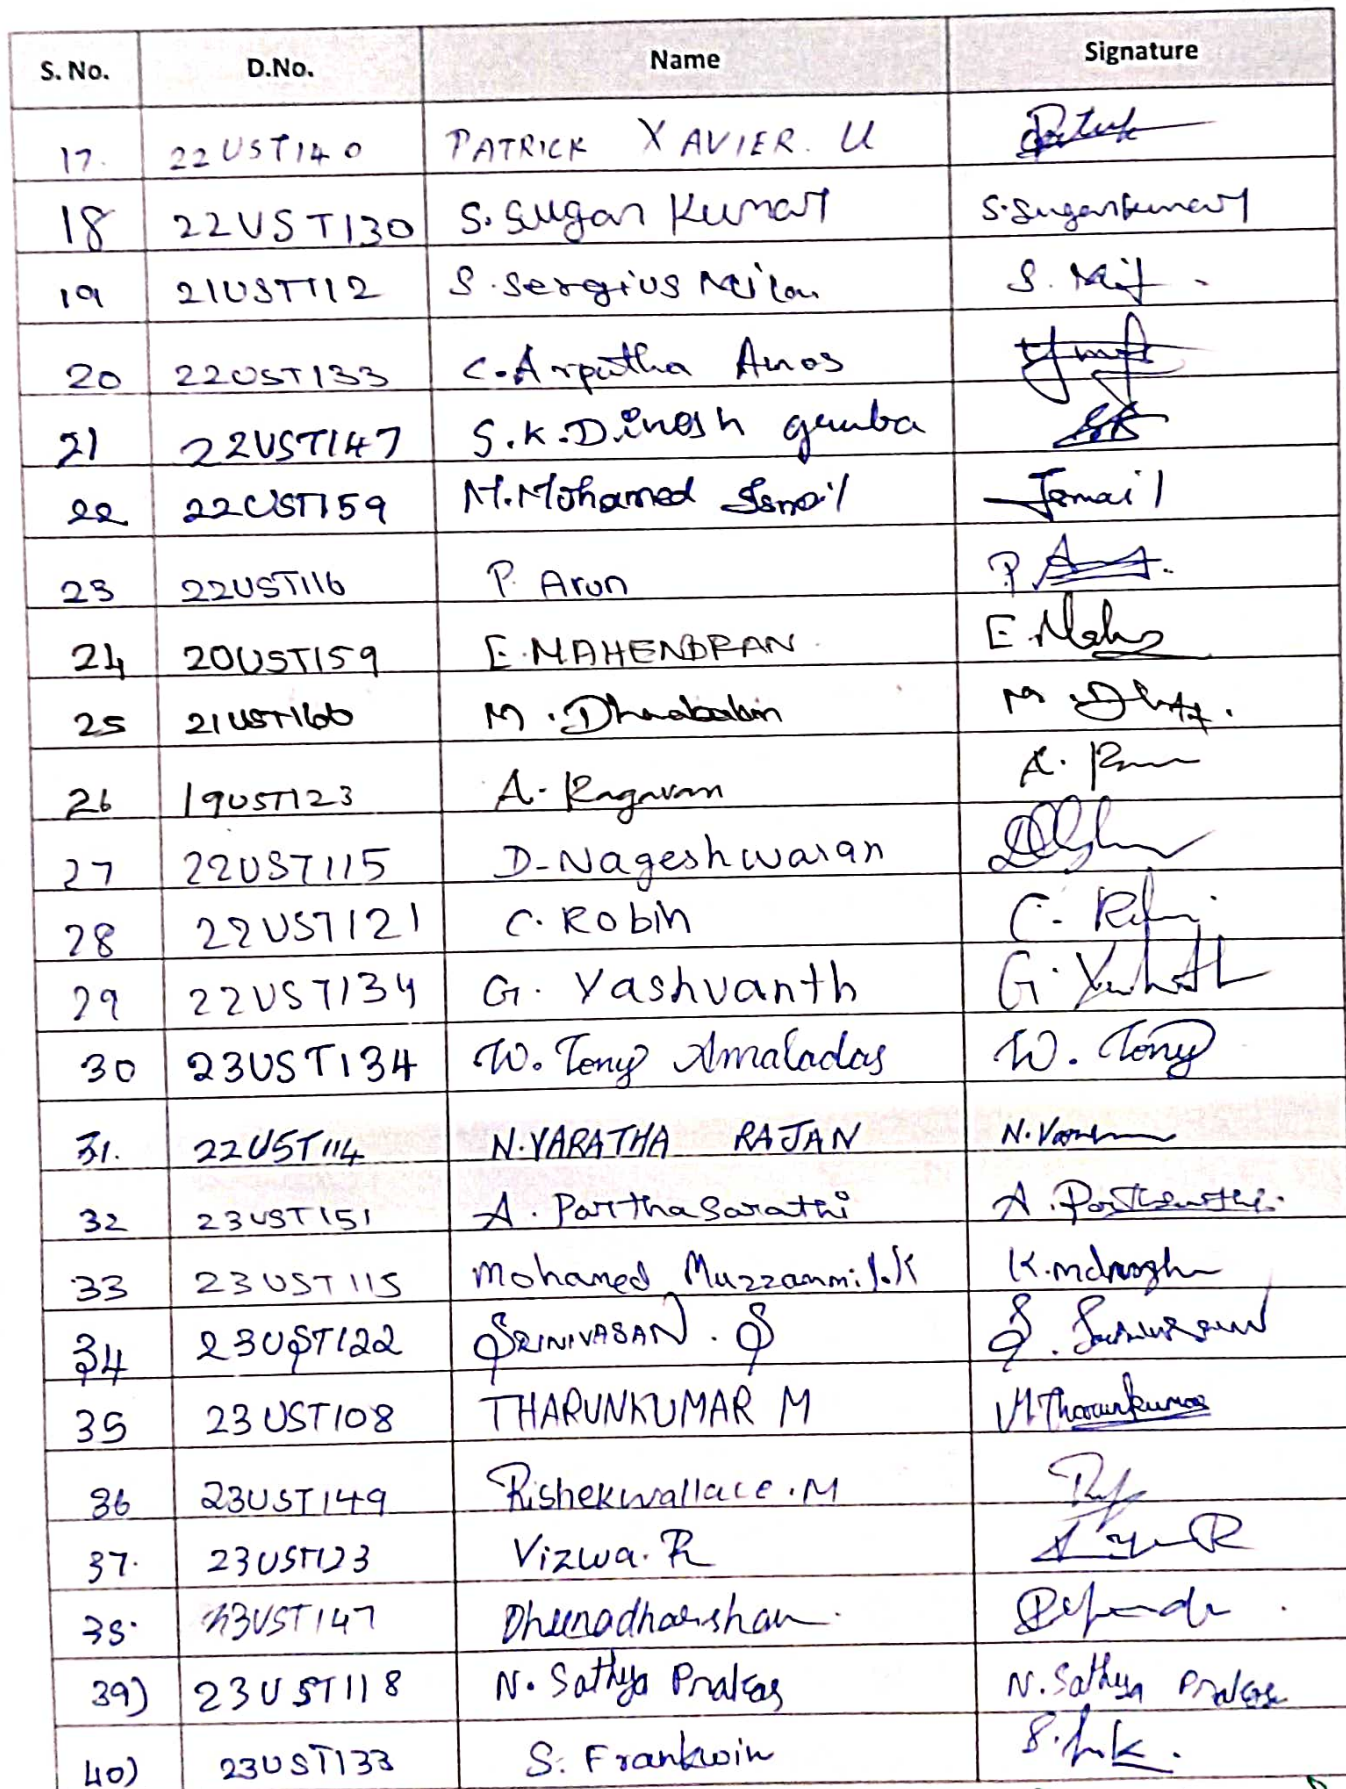 S. No. D.No. Name Signature
17. 22UST140 PATRICK XAVIER. U
18 22UST130 S. Sugan Kumar S. Sugankumar
19 21UST112 S. Sergius Milan S.
20 22UST133 C. Arputha Amos
21 22UST147 S.K. Dinesh
22 22UST159 M. Mohamed Ismail Ismail
23 22UST116 P. Arun P.
24 20UST159 E. MAHENDRAN E.
25 21UST166 M. M.
26 19UST123 A. Ragavan A.
27 22UST115 D-Nageshwaran
28 22UST121 C. Robin C.
29 22UST134 G. Yashvanth G.
30 23UST134 W. Tony Amaladas W. Tony
31. 22UST114 N. VARATHA RAJAN N.
32 23UST151 A. Parthasarathi A. Parthasarathi
33 23UST115 Mohamed Muzzammil.K
34 23UST122 SRINIVASAN . S S.
35 23UST108 THARUNKUMAR M M. Tharunkumar
36 23UST149 Rishekwallace.M
37. 23UST123 Vizwa. R
38. 23UST147
39) 23UST118 N. Sathya Prakas N. Sathya
40) 23UST133 S. Frankwin S.